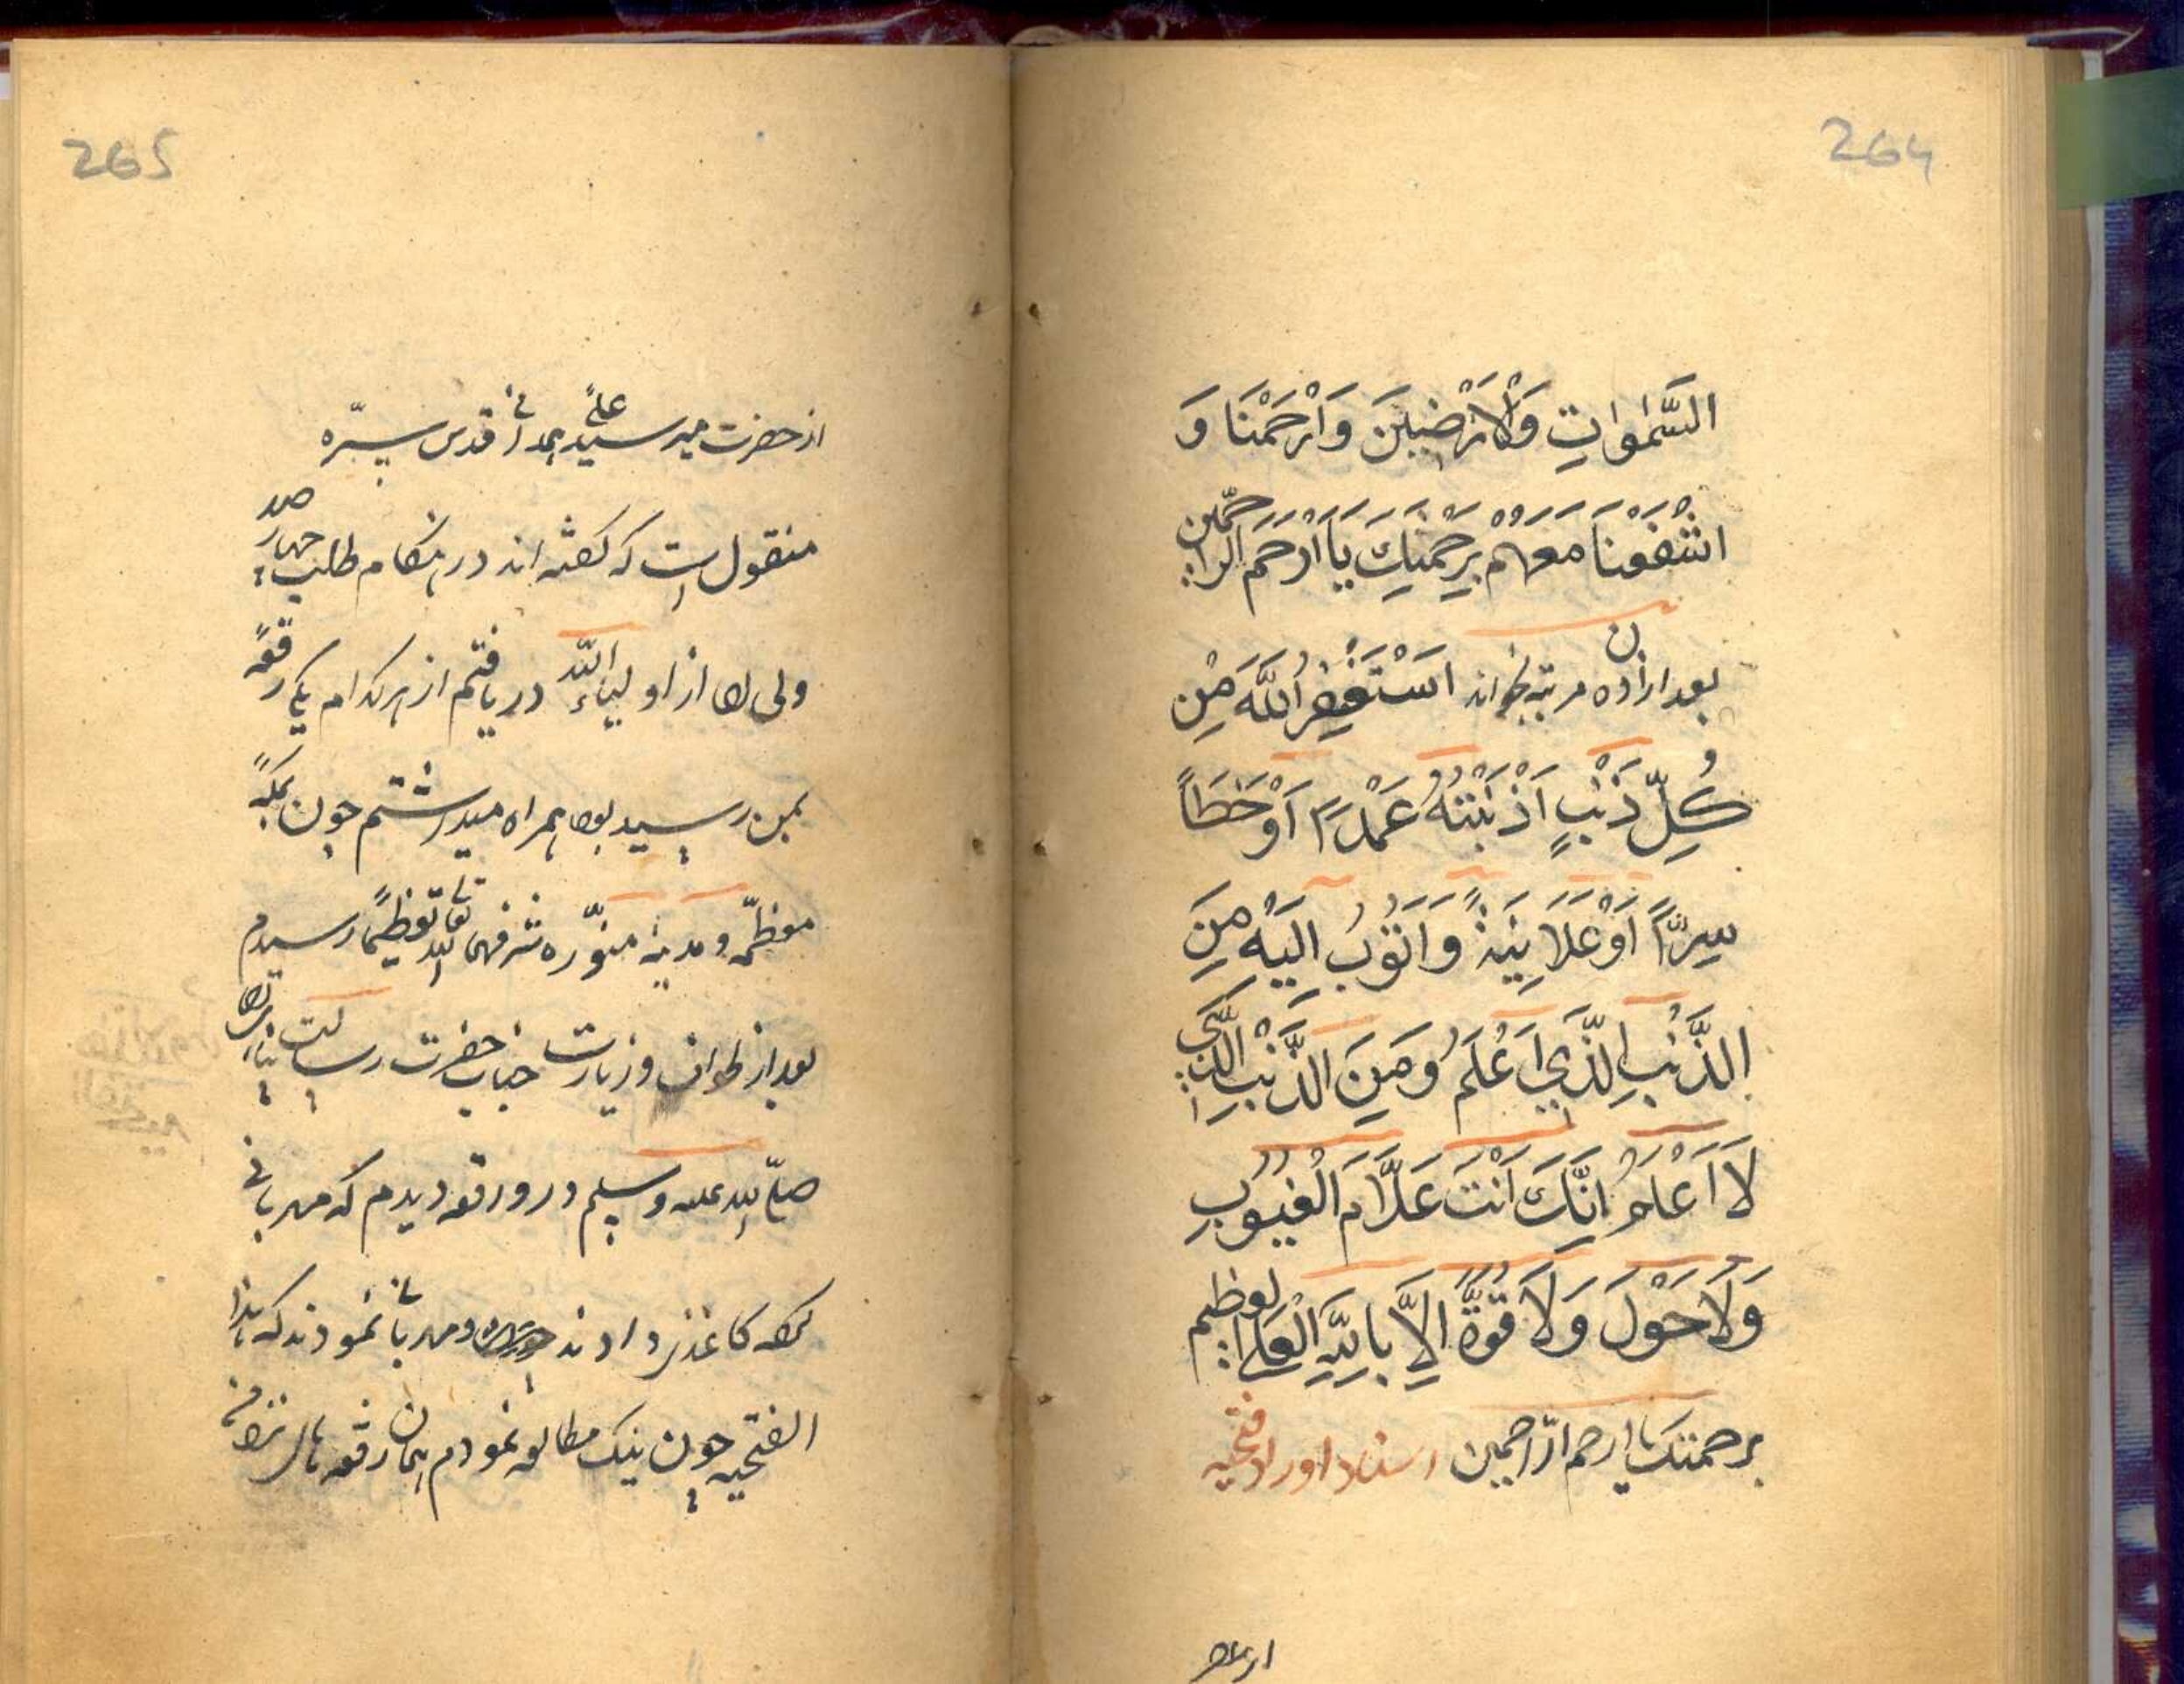 264
السَّمٰوَاتِ وَالْاَرَضِينَ وَارْحَمْنَا وَ
احْشُرْنَا مَعَهُمْ بِرَحْمَتِكَ يَا اَرْحَمَ الرَّاحِمِين
بعد ازان ده مرتبه بخواند اَسْتَغْفِرُ اللّٰهَ مِنْ
كُلِّ ذَنْبٍ اَذْنَبْتُهُ عَمْدًا اَوْ خَطَأً
سِرًّا اَوْ عَلَانِيَةً وَاَتُوبُ اِلَيْهِ مِنَ
الذَّنْبِ الَّذِي اَعْلَمُ وَمِنَ الذَّنْبِ الَّذِي
لَا اَعْلَمُ اِنَّكَ اَنْتَ عَلَّامُ الْغُيُوبِ
وَلَا حَوْلَ وَلَا قُوَّةَ اِلَّا بِاللّٰهِ الْعَلِيِّ العظيم
برحمتك يا ارحم الرّاحمين اسناد اوراد فتحيه
از حضرت
265
از حضرت مير سيد علي همداني قدس سرّه
منقول است كه گفته اند در هنگام طلب چهار صد
ولى را از اولياء الله دريافتم از هر كدام يك رقعه
بمن رسيد بود همراه ميداشتم چون بمكه
معظّمه و مدينه منوّره شرفهما الله تعالى تعظيماً رسيدم
بعد از طواف و زيارت جناب حضرت رسالت پناه
صلى الله عليه وسلم در ورقه ديدم كه مهربانى
كاغذ دادند و مهربانى نمودند كه هذا
الفتحيه چون نيك مطالعه نمودم همان رقعه